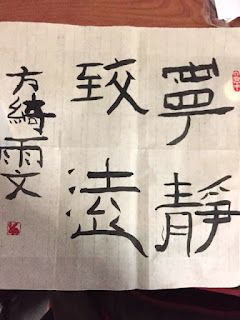 寧靜
致遠
方綺雯